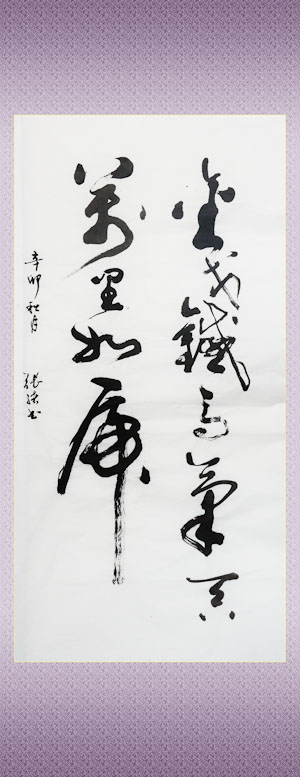 金戈鐵馬氣吞
萬里如虎
辛卯秋月
張